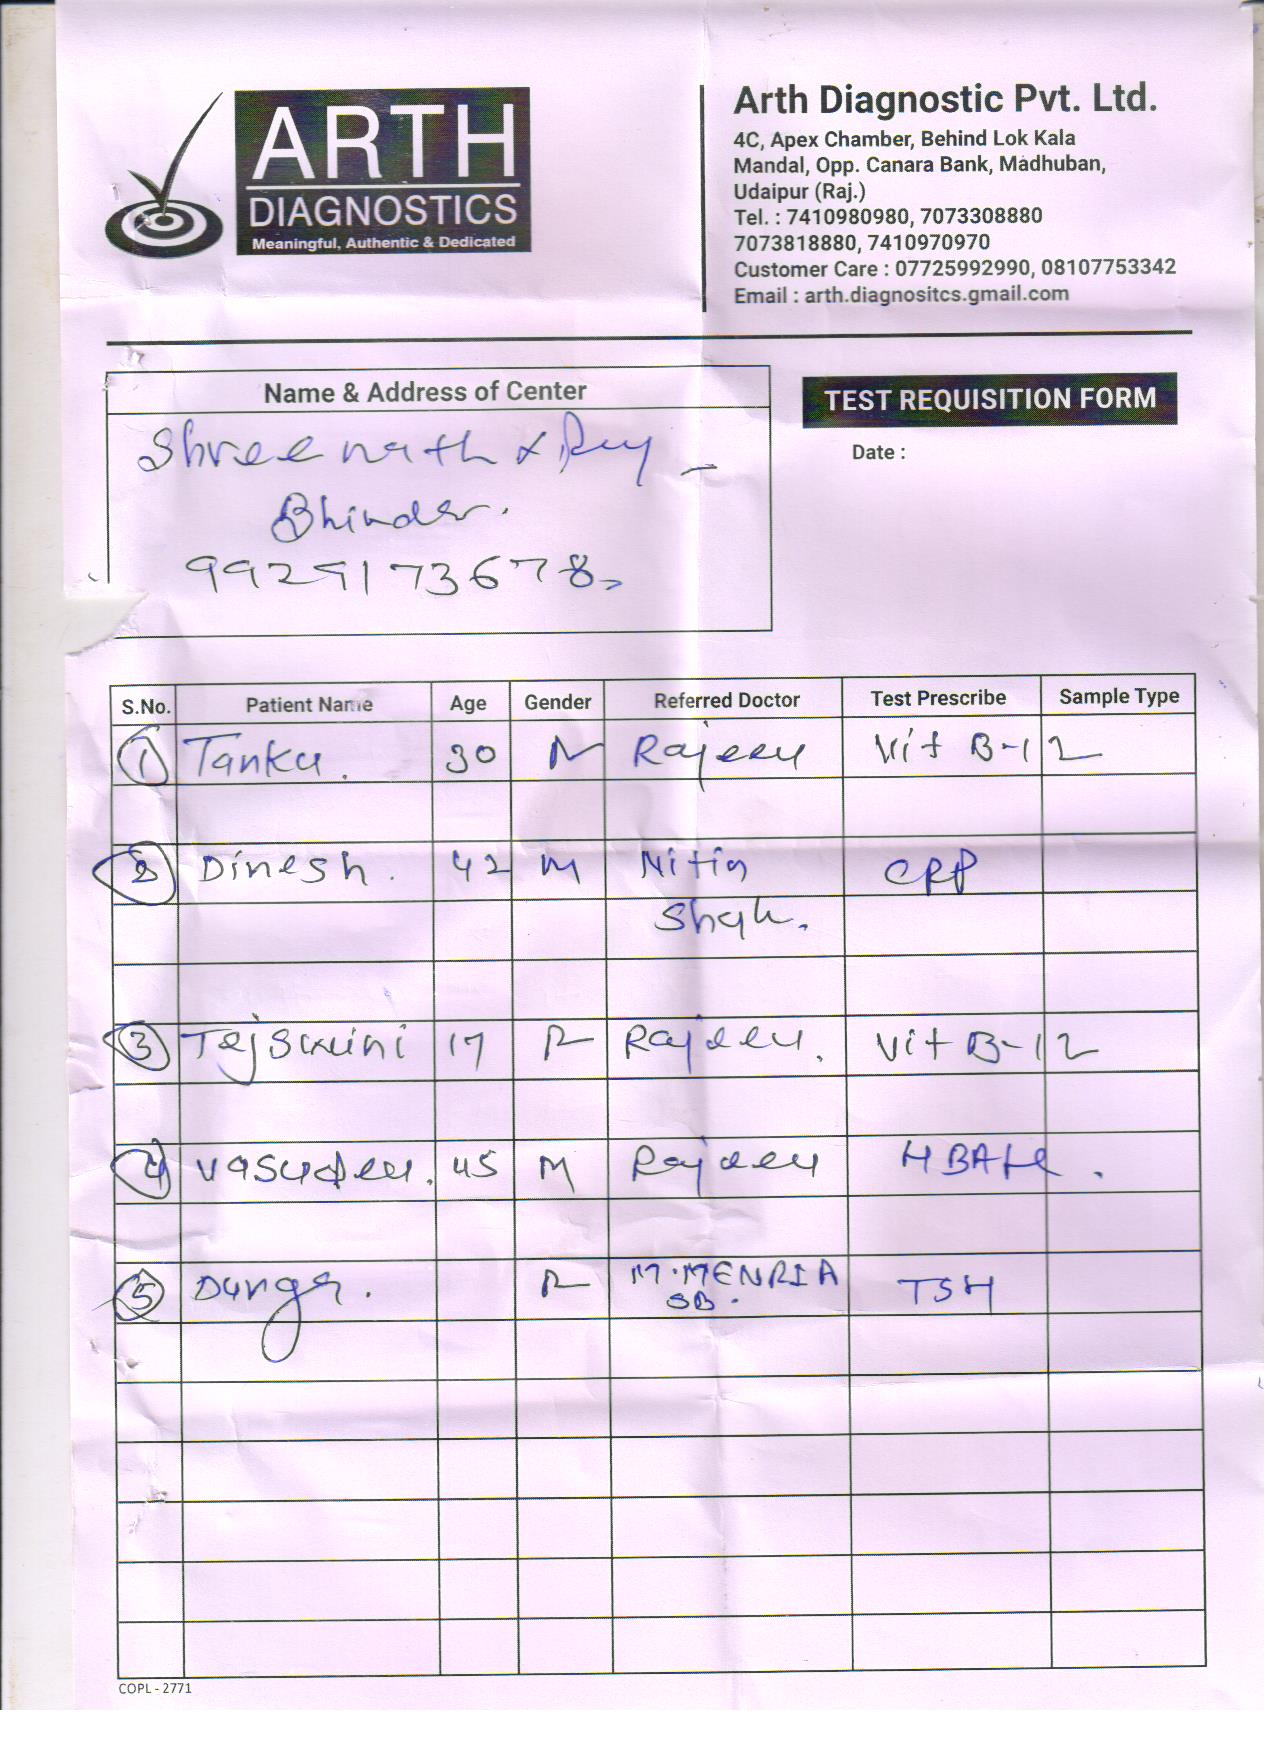 ARTH
DIAGNOSTICS
Meaningful, Authentic & Dedicated
Arth Diagnostic Pvt. Ltd.
4C, Apex Chamber, Behind Lok Kala
Mandal, Opp. Canara Bank, Madhuban,
Udaipur (Raj.)
Tel. : 7410980980, 7073308880
7073818880, 7410970970
Customer Care : 07725992990, 08107753342
Email : arth.diagnositcs.gmail.com
Name & Address of Center
TEST REQUISITION FORM
Date :
Shreenath
Bhinder.
9929173678
S.No. Patient Name Age Gender Referred Doctor Test Prescribe Sample Type
1 Tanku. 30 M Rajeev Vit B-12
2 Dinesh. 42 M Nitin CRP
Shah.
3 17 Rajeev. Vit B-12
4 Vasudev. 45 M Rajeev
5 Durga. M.MENRIA TSH
SB.
COPL - 2771